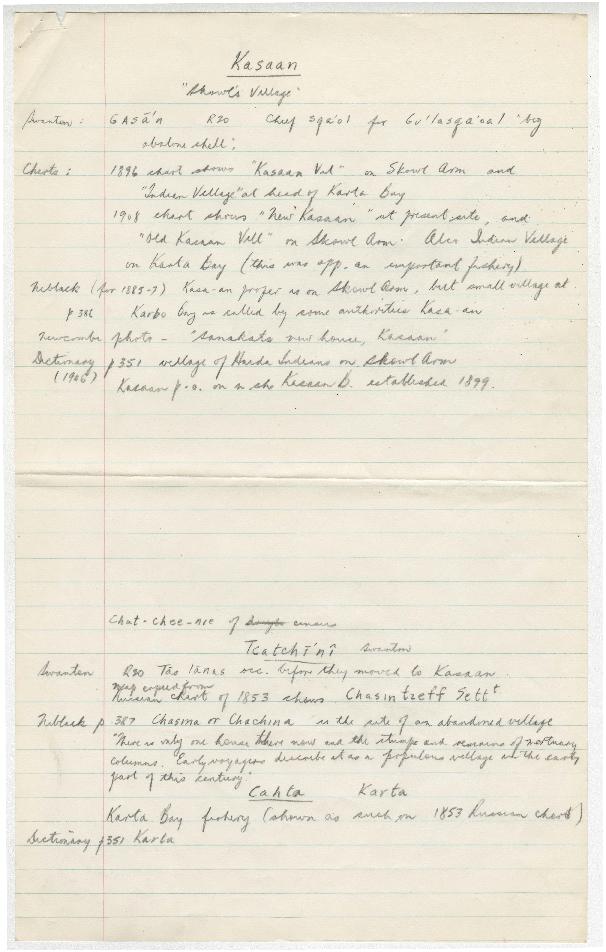 Kasaan
"Skowl's Village"
Swanton: GAsā'n R20 Chief sqā'ol for Gu'lasqā'oal 'big
abalone shell';
Charts: 1896 chart shows "Kasaan Vil" on Skowl Arm and
"Indian Village" at head of Karta Bay
1908 chart shows "New Kasaan" at present site, and
"Old Kasaan Vill" on Skowl Arm. Also Indian Village
on Karta Bay (this was app. an important fishery)
Niblack (for 1885-7) Kasa-an proper is on Skowl Arm, but small village at
p 386 Karbo bay is called by some authorities Kasa-an
Newcombe photo - "Sanakats new house, Kasaan"
Dictionary p 351 village of Haida Indians on Skowl Arm
(1906) Kasaan p.o. on n sho Kasaan B. established 1899.
Chat-chee-nie of census
Tcatchī'nî Swanton
Swanton R20 Tās lānas occ. before they moved to Kasaan.
map copied from
Russian chart of 1853 shows Chasintzeff Settt
Niblack p 387 Chasina or Chachina is the site of an abandoned village
"There is only one house there now and the stumps and remains of mortuary
columns. Early voyagers describe it as a populous village in the early
part of this century"
Cahta Karta
Karta Bay fishery (shown as such on 1853 Russian chart)
Dictionary p351 Karta